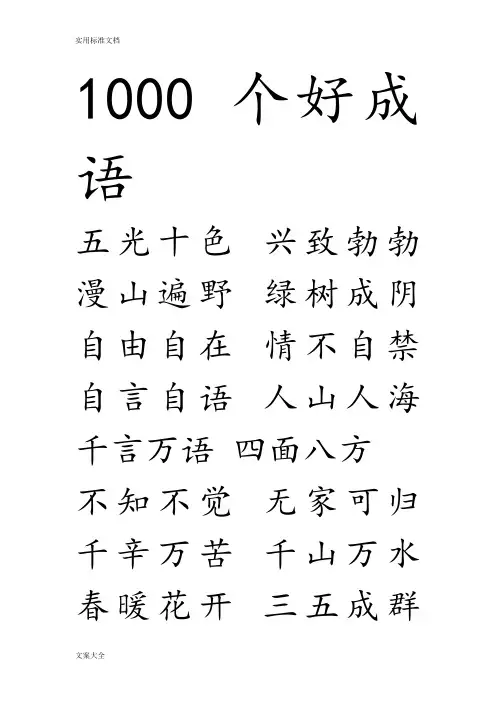 实用标准文档
1000 个好成
语
五光十色 兴致勃勃
漫山遍野 绿树成阴
自由自在 情不自禁
自言自语 人山人海
千言万语 四面八方
不知不觉 无家可归
千辛万苦 千山万水
春暖花开 三五成群
文案大全